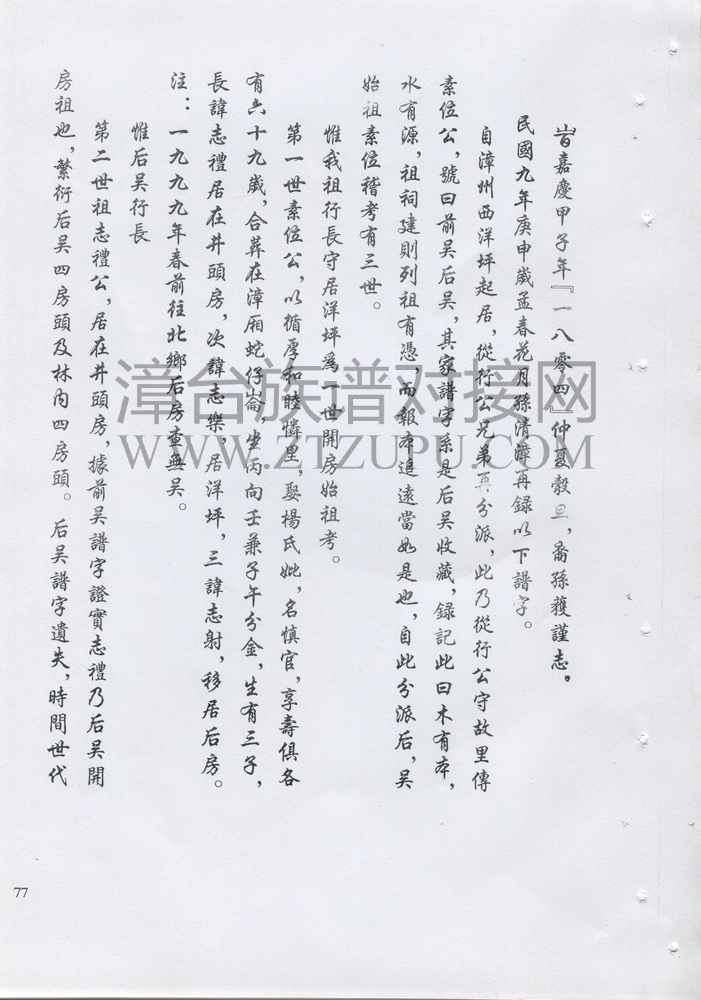 旹嘉慶甲子年『一八零四』仲夏穀旦，裔孫獲謹志。
民國九年庚申歲孟春花月孫清漳再錄以下譜字。
自漳州西洋坪起居，從行公兄弟再分派，此乃從行公守故里傳
素位公，號曰前吴后吴，其家譜字系是后吴收藏，錄記此曰木有本，
水有源，祖祠建則列祖有憑，而報本追遠當如是也，自此分派后，吴
始祖素位稽考有三世。
惟我祖行長守居洋坪爲一世開房始祖考。
第一世素位公，以循厚和睦憐里，娶楊氏妣，名慎官，享壽俱各
有六十九歲，合葬在漳厢蛇仔崙，坐丙向壬兼子午分金，生有三子，
長諱志禮居在井頭房，次諱志樂，居洋坪，三諱志射，移居后房。
注：一九九九年春前往北鄉后房查無吴。
惟后吴行長
第二世祖志禮公，居在井頭房，據前吴譜字證實志禮乃后吴開
房祖也，繁衍后吴四房頭及林内四房頭。后吴譜字遺失，時間世代
漳台族谱对接网
WWW.ZTZUPU.COM
77